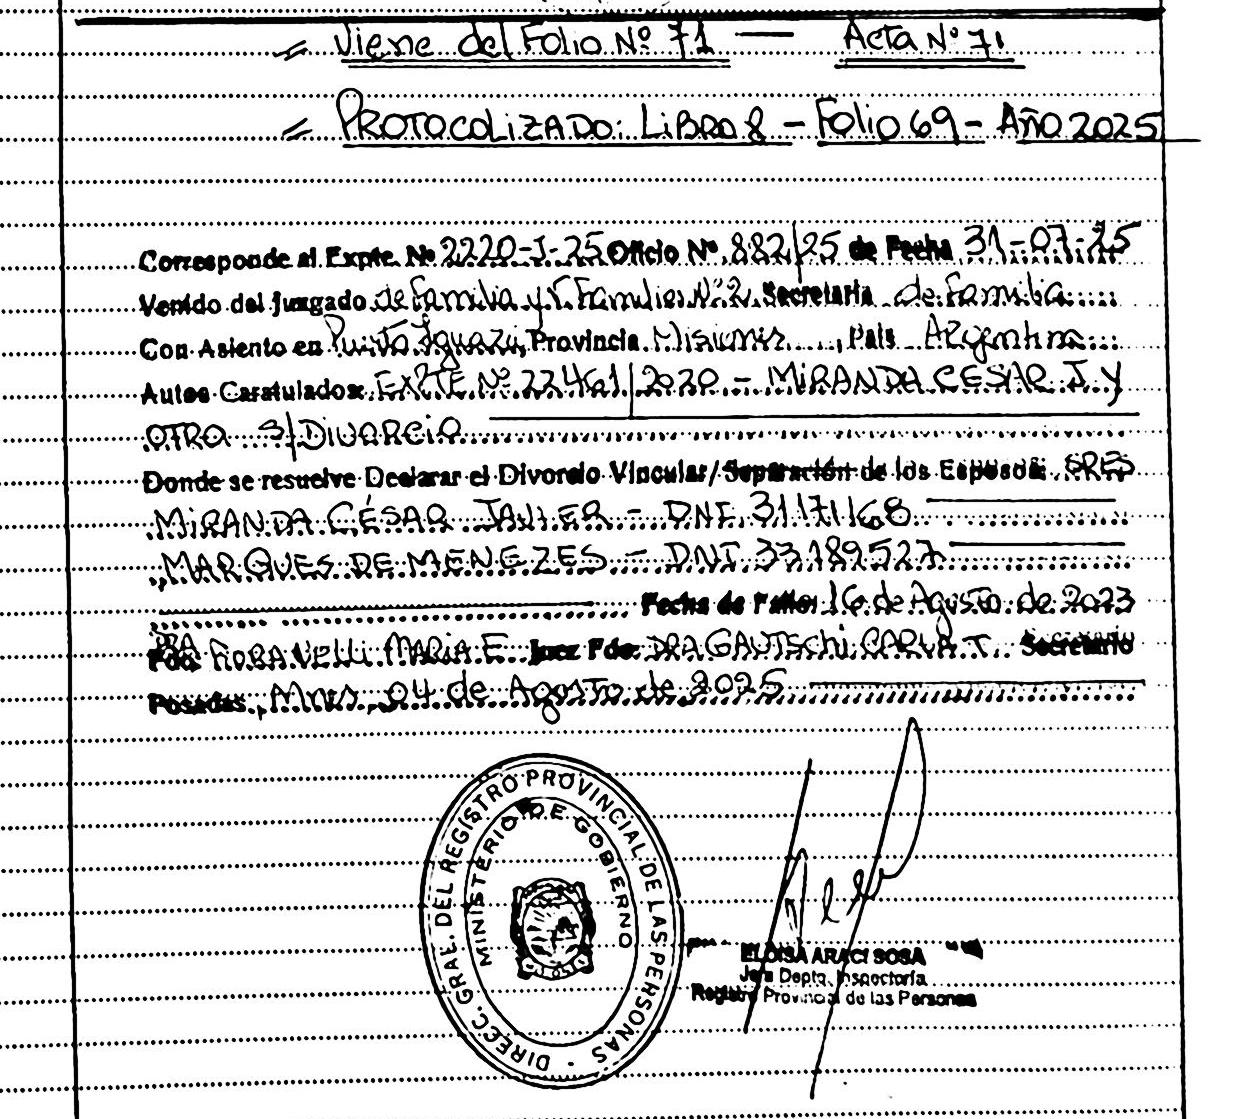 Viene del Folio Nº 71 — Acta Nº 71
PROTOCOLIZADO: LiBRO 8 - Folio 69 - AÑO 2025
Corresponde al Expte. Nº 2220-J-25 Oficio Nº 882/25 de Fecha 31-07-25
Venido del Juzgado de Familia y V. Familiar Nº 2 Secretaria de Familia
Con Asiento en Puerto Iguazú, Provincia Misiones, Pais Argentina
Autos Caratulados: EXPTE Nº 22461/2020 - MIRANDA CESAR J. Y
OTRA S/DIVORCIO
Donde se resuelve Declarar el Divorcio Vincular/Separación de los Esposos: SRES
MIRANDA CÉSAR JAVIER - DNI 31171168
MARQUES DE MENEZES - DNI 33189527
Fecha de Fallo: 16 de Agosto de 2023
Fdo. DRA FIORANELLI MARIA E. Juez Fdo: DRA GAUTSCHI CARLA T. Secretario
Posadas, Mnes, 04 de Agosto de 2025
DIREC. GRAL. DEL REGISTRO PROVINCIAL DE LAS PERSONAS
MINISTERIO DE GOBIERNO
ELOISA ARACI SOSA
Jefa Depto. Inspectoría
Registro Provincial de las Personas